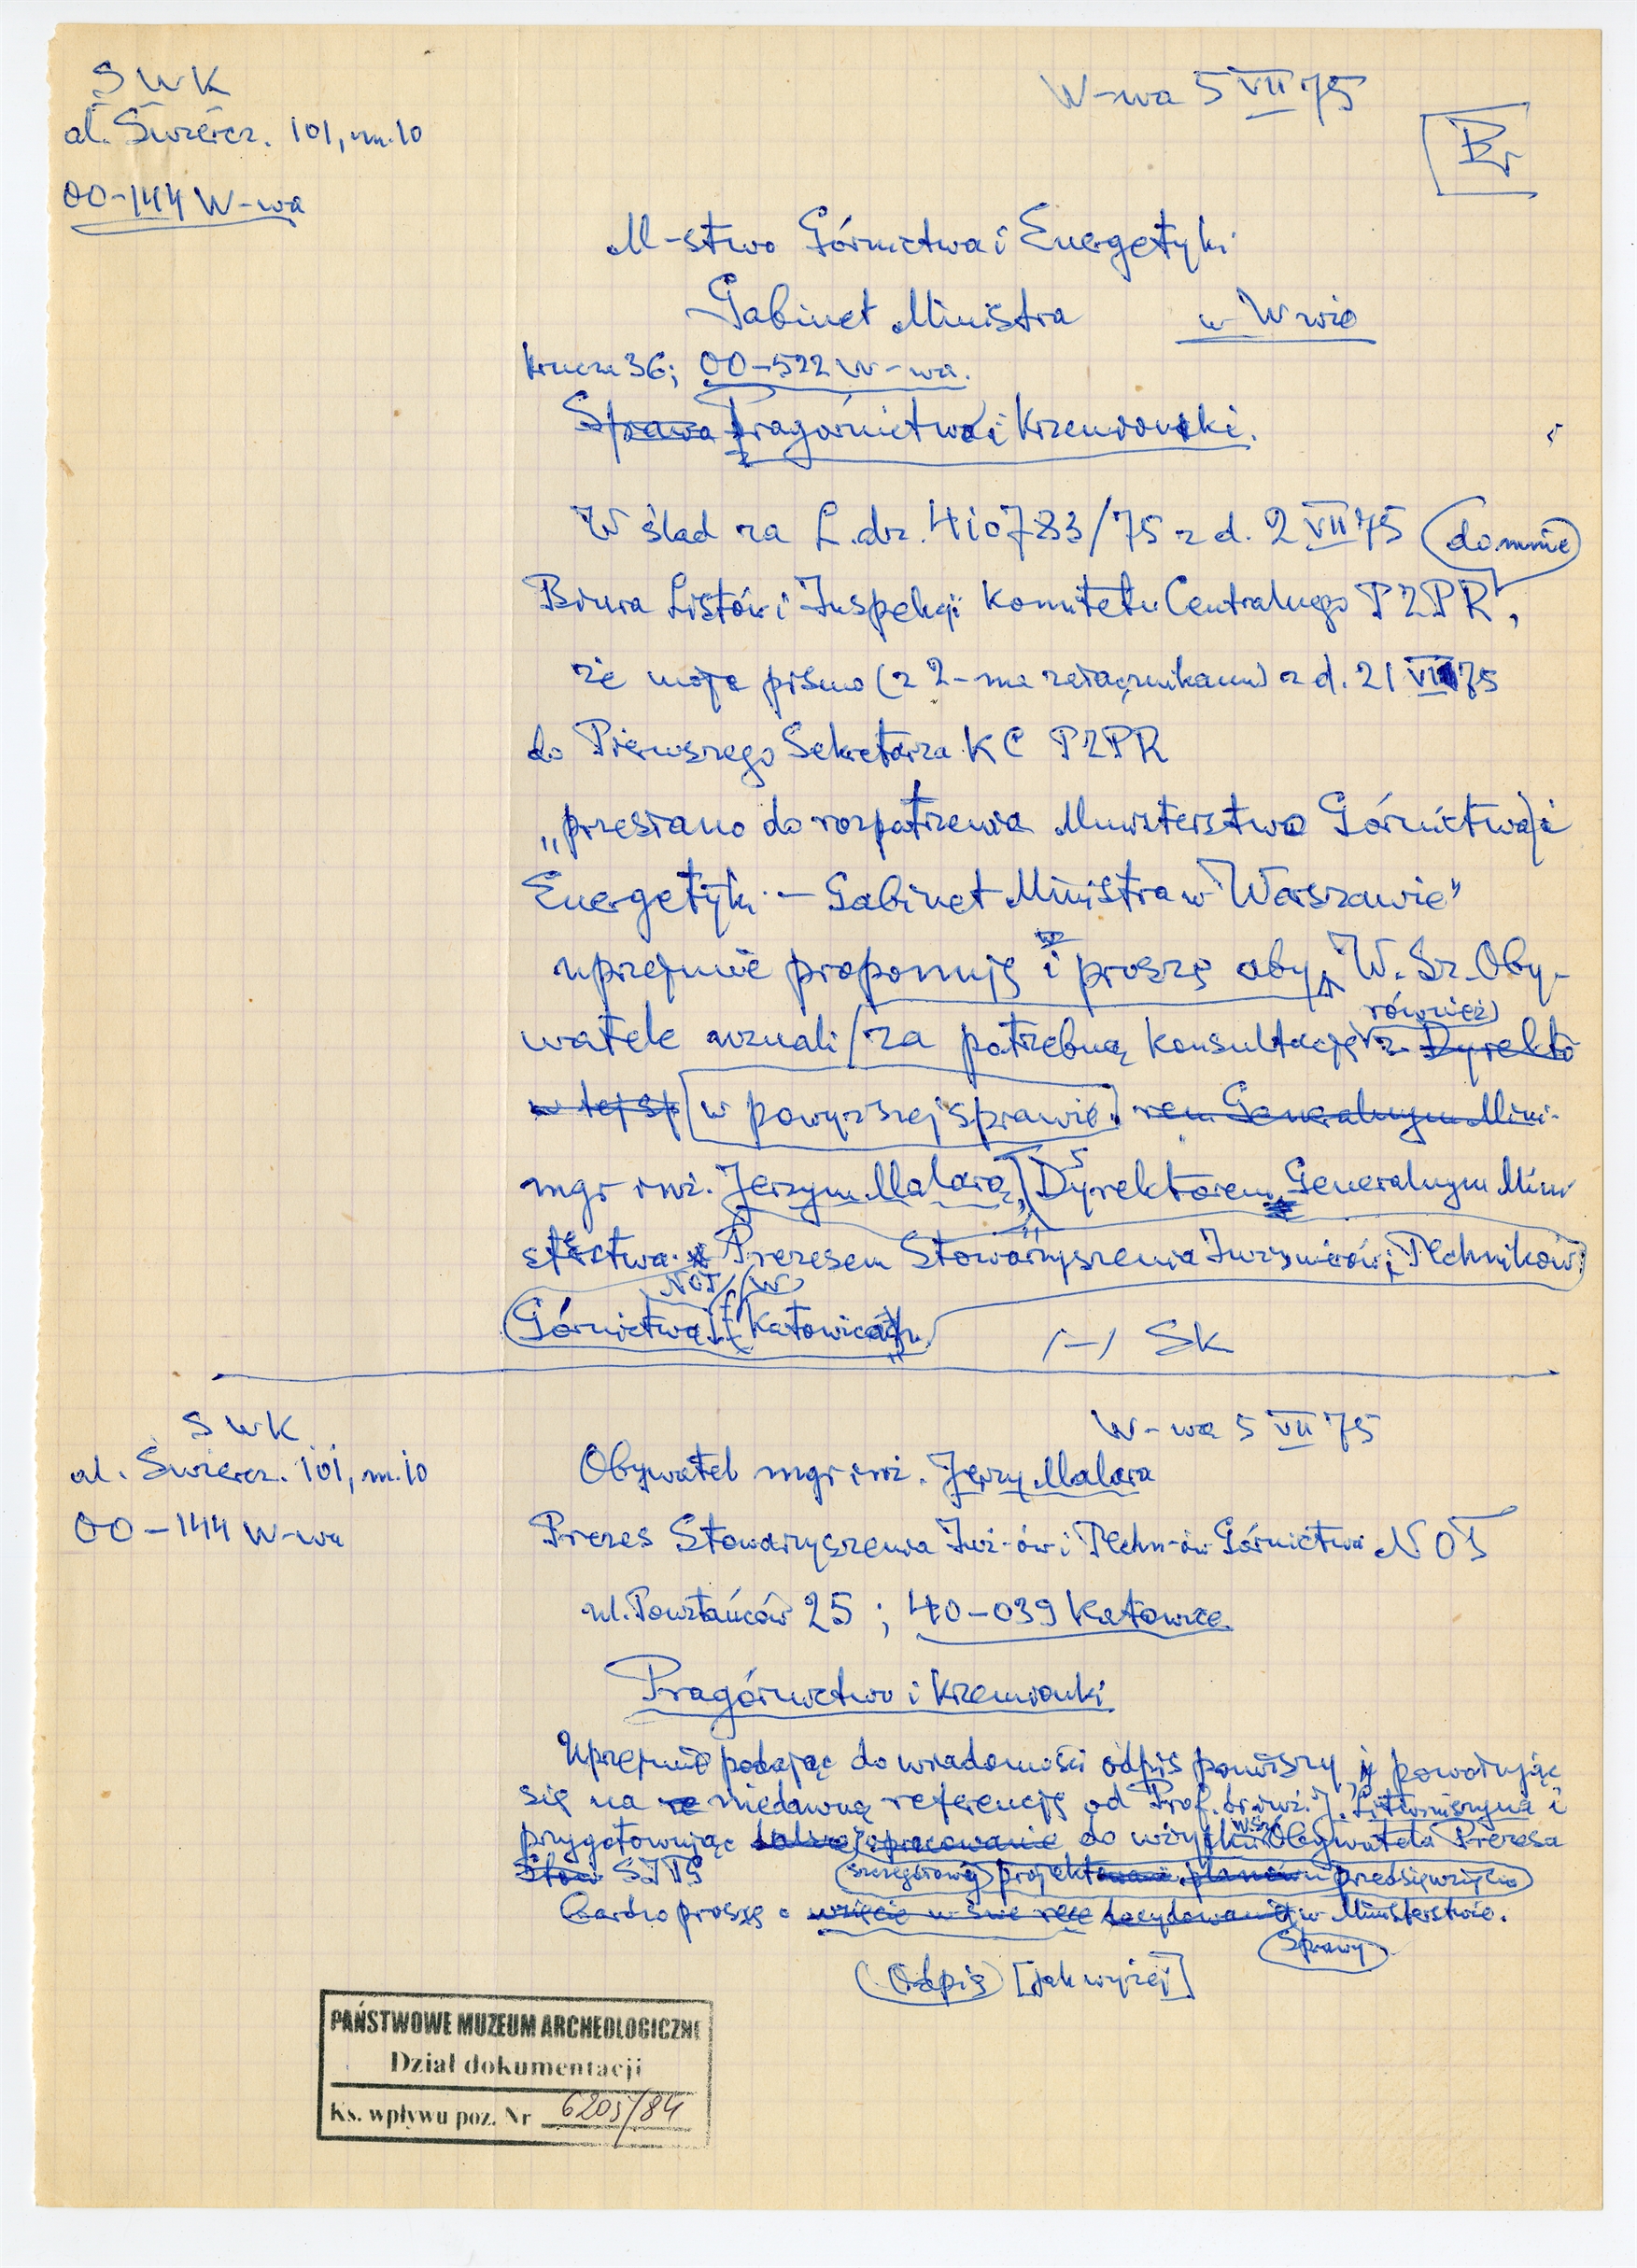 SWK
W-wa 5 VII 75
al. Świercz. 101, m. 10
Br
00-144 W-wa
M-stwo Górnictwa i Energetyki
Gabinet Ministra w W-wie
Krucza 36; 00-522 W-wa.
Sprawa Pragórnictwo i Krzemionki.
W ślad za L. dz. 410783/75 z d. 2 VII 75 do mnie
Biura Listów i Inspekcji Komitetu Centralnego PZPR,
że moje pismo (z 2-ma załącznikami) z d. 21 VI 75
do Pierwszego Sekretarza KC PZPR
„przesłano do rozpatrzenia Ministerstwo Górnictwa i
Energetyki - Gabinet Ministra w Warszawie"
uprzejmie proponuję i proszę aby W. Sz. Oby-
również
watele uznali za potrzebną konsultację z Dyrekto
w tej sp w powyższej sprawie. rem Generalnym Mini-
mgr inż. Jerzym Malarą, Dyrektorem Generalnym Mini
sterstwa Prezesem Stowarzyszenia Inżynierów i Techników
NOT w
Górnictwa Katowicach
/-/ SK
SWK
W-wa 5 VII 75
al. Świercz. 101, m. 10
Obywatel mgr inż. Jerzy Malara
00-144 W-wa
Prezes Stowarzyszenia Inż-ów i Techn-ów Górnictwa NOT
ul. Powstańców 25; 40-039 Katowice
Pragórnictwo i Krzemionki
Uprzejmie podając do wiadomości odpis poniższy, powołując
się na niedawną referencję od Prof. dr. inż. J. Litwiniszyna i
przygotowując opracowanie do użytku W.Sz. Obywatela Prezesa
Stow SITG szczegółowy projekt planów przedsięwzięcia
bardzo proszę o wzięcie w swe ręce decydowanie w Ministerstwie.
sprawy
(Odpis) [jak wyżej]
PAŃSTWOWE MUZEUM ARCHEOLOGICZNE
Dział dokumentacji
Ks. wpływu poz. Nr 6205/84